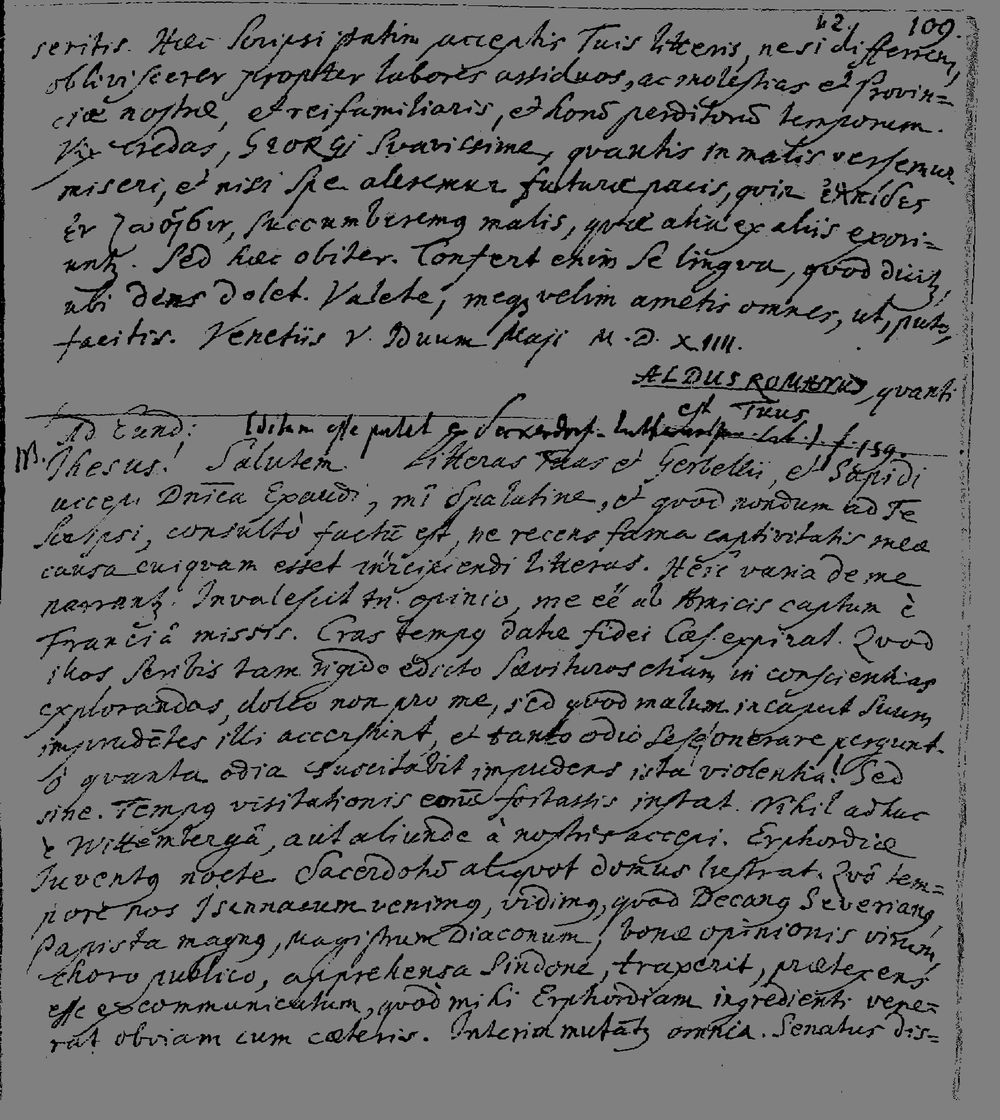 42. 109.
seritis. Haec Scripsi statim acceptis Tuis litteris, ne si differrem,
obliviscerer propter labores assiduos, ac molestias et Provin=
ciae nostrae, et rei familiaris, et honū perditorū temporum.
Vix credas, GEORGI Suavissime, quantis in malis versemur
miseri, et nisi Spe aleremur futurae pacis, quia ἐλπίδες
ἐν ζωοῖσιν, succumberemq malis, quae alia ex aliis exori=
untz. Sed haec obiter. Confert enim se lingua, quod dicitz,
ubi dens dolet. Valete, meqz velim ametis omnes, ut, puto,
facitis. Venetiis V. Iduum Maji M. D. XIIII.
ALDUS ROMANUS, quanti
est Tuus
Ad Eund: Editum esse patet ex Seckendorf. f. 159.
Ihesus! Salutem Litteras Tuas et Gerbellii, et Sapidi
accepi Dnīca Exaudi, mī Spalatine, et quod nondum ad Te
Scripsi, consultò factū est, ne recens fama captivitatis meae
causa cuiquam esset intercipiendi litteras. Heic varia de me
narrantz. Invalescit tn̄ opinio, me eē ab Amicis captum è
Franciâ missis. Cras tempq datae fidei Caes. expirat. Quod
illos scribis tam rigido edicto saevituros etiam in conscientias
explorandas, doleo non pro me, sed quod malum in caput Suum
imprudētes illi accersunt, et tanto odio sese onerare pergunt.
O quanta odia suscitabit impudens ista violentia! Sed
sine. Tempq visitationis eorū fortassis instat. Nihil adhuc
è Wittembergâ, aut aliunde à nostris accepi. Erphordiae
Juventq nocte Sacerdotū aliquot domus lustrat. Quô tem=
pore nos Isennacum venimq, vidimq, quod Decanq Severianq,
Papista magnq, Magistrum Diaconum, bonae opinionis virum,
choro publico, apprehensa Sindone, traxerit, praetexens
esse excommunicatum, quòd mihi Erphordiam ingredienti vene=
rat obviam cum caeteris. Interim mutātz omnia. Senatus dis=